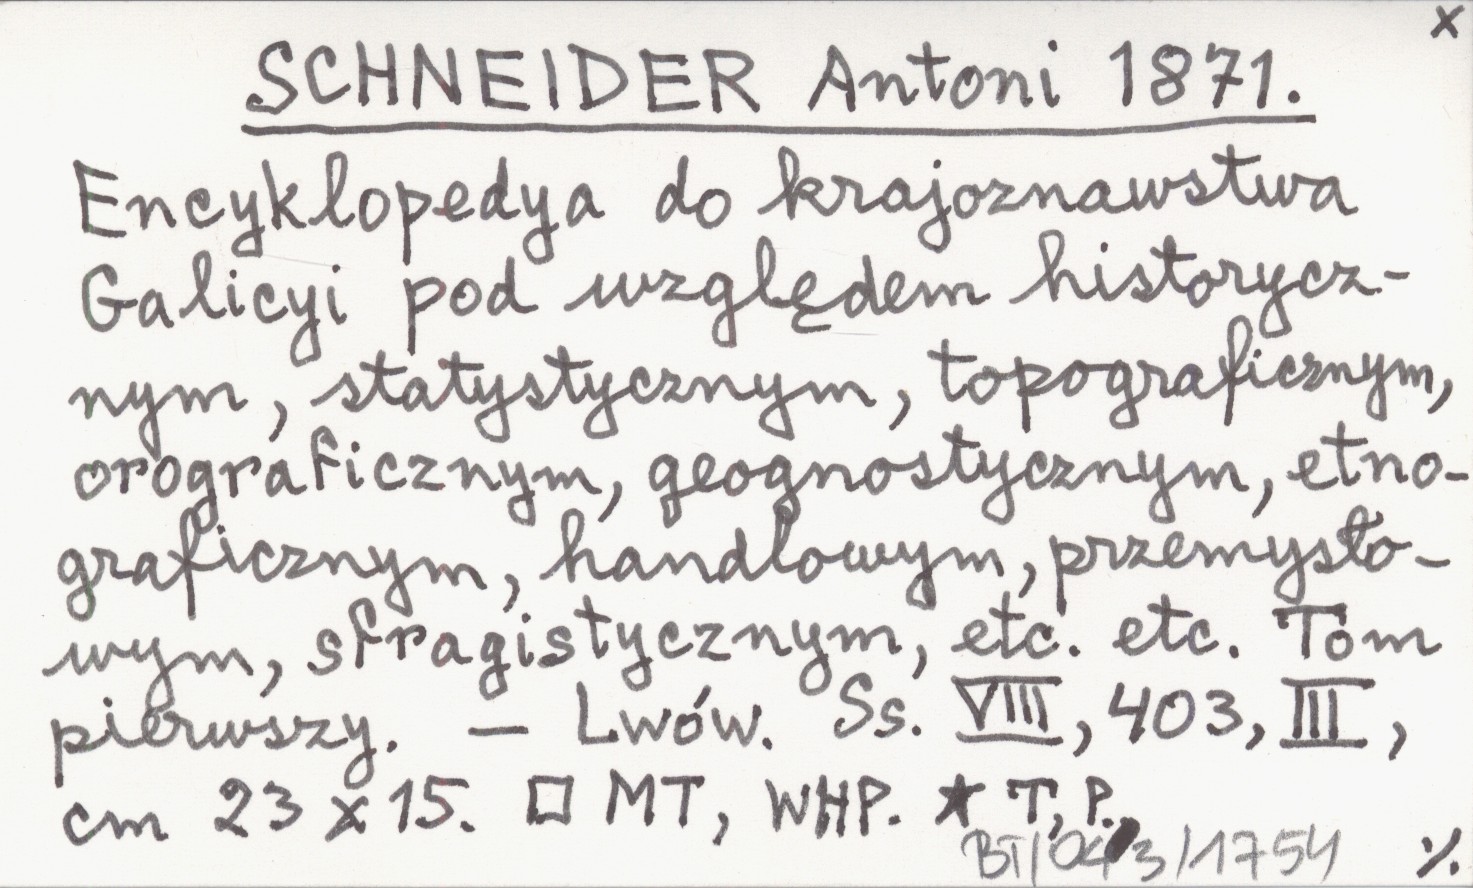 x
SCHNEIDER Antoni 1871.
Encyklopedya do krajoznawstwa
Galicyi pod względem historycz-
nym, statystycznym, topograficznym,
orograficznym, geognostycznym, etno-
graficznym, handlowym, przemysło-
wym, sfragistycznym, etc. etc. Tom
pierwszy. — Lwów. Ss. VIII, 403, III,
cm 23 x 15. □ MT, WHP. ★ T, P.
1754
./.